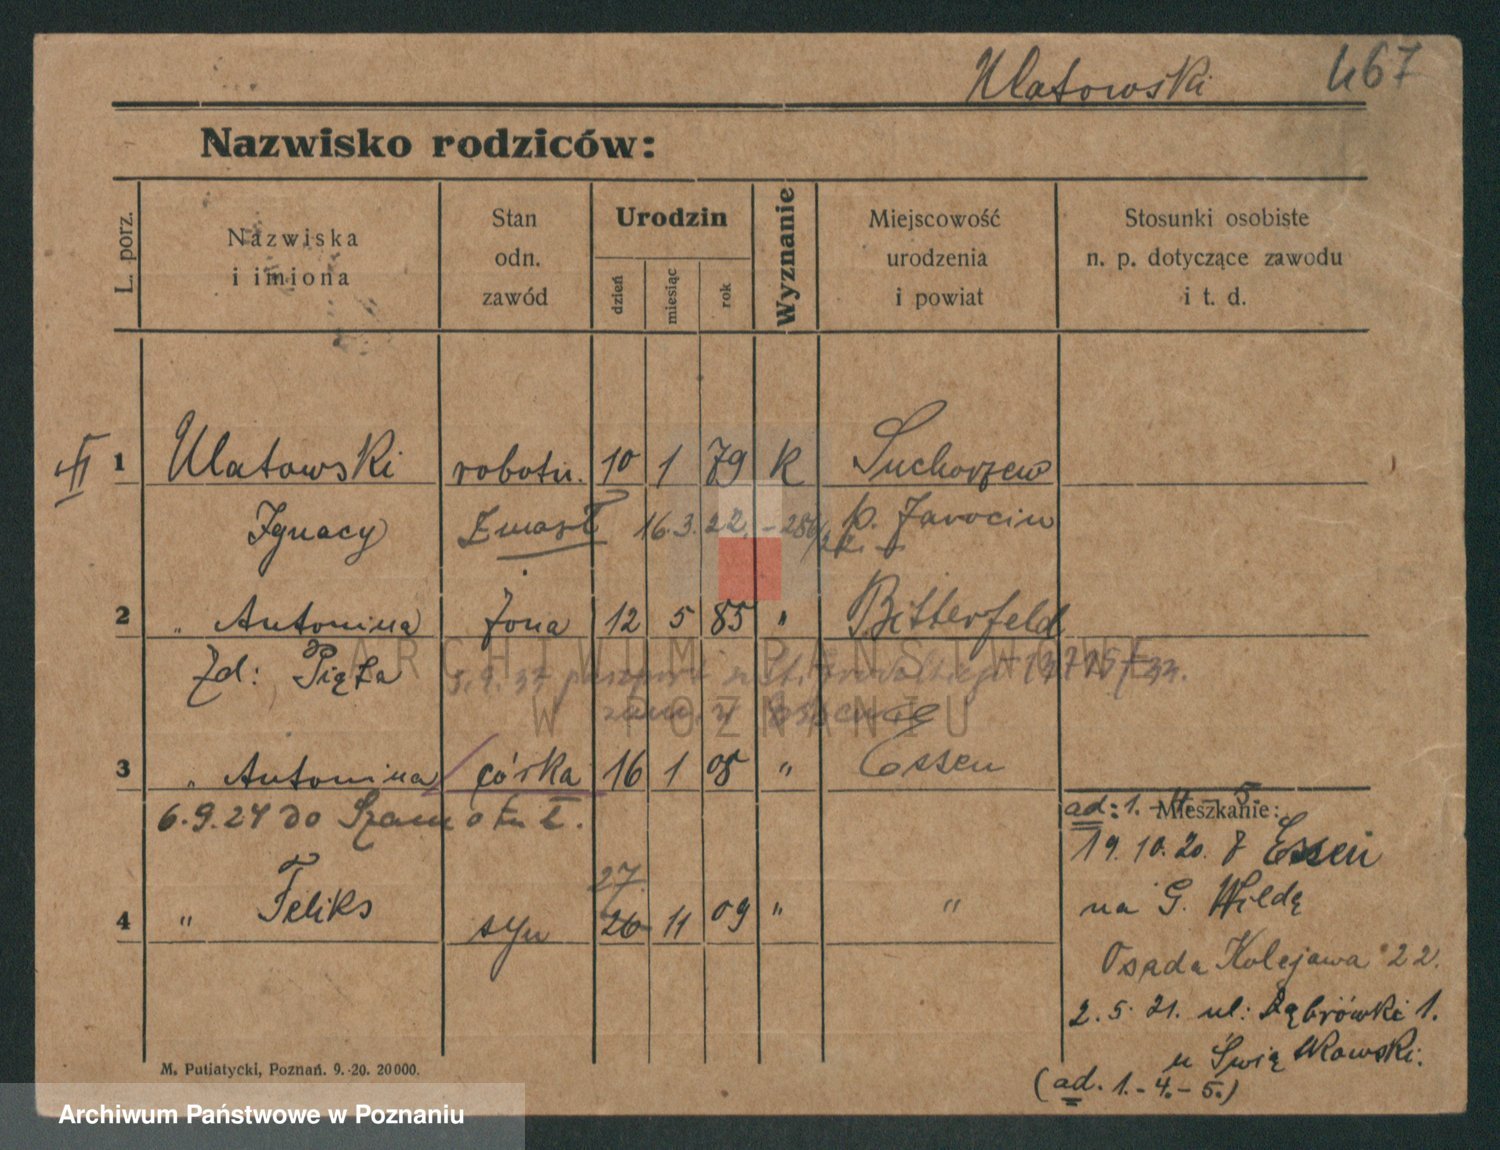 Ulatowski 467
Nazwisko rodziców:
L. porz.
Nazwiska
i imiona
Stan
odn.
zawód
Urodzin
dzień
miesiąc
rok
Wyznanie
Miejscowość
urodzenia
i powiat
Stosunki osobiste
n. p. dotyczące zawodu
i t. d.
1 Ulatowski robotn. 10 1 79 k Suchorzew
Ignacy Zmarł 16.3.22. p. Jarocin
2 " Antonina żona 12 5 85 " Bitterfeld
Zd: Pięta 5.9.37 paszport
3 " Antonina córka 16 1 08 " Essen
6.9.24 do Szamotuł.
27
4 " Feliks syn 26 11 09 " "
Mieszkanie:
ad: 1. - 4. - 5.
19. 10. 20. z Essen
na G. Wildę
Osada Kolejawa 22.
2. 5. 21. ul: Dąbrówki 1.
u Świątkowski.
(ad. 1. - 4. - 5.)
M. Putiatycki, Poznań. 9.-20. 20000.
ARCHIWUM PAŃSTWOWE
W POZNANIU
Archiwum Państwowe w Poznaniu